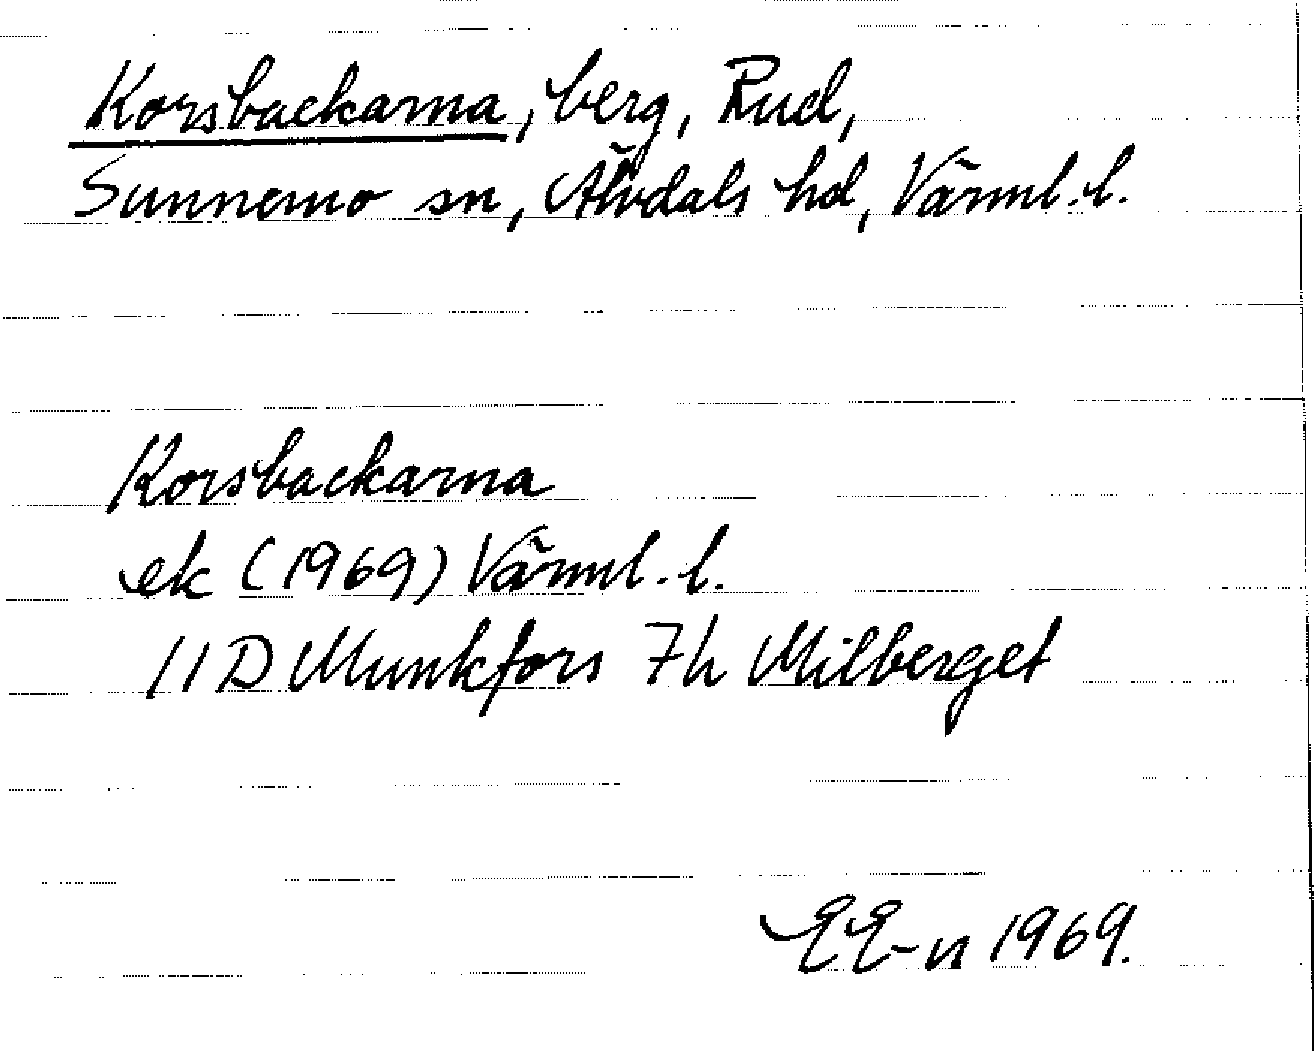 Korsbackarna, berg, Rud,
Sunnemo sn, Älvdals hd, Värml. l.
Korsbackarna
ek (1969) Värml. l.
11D Munkfors 7h Milberget
EE-n 1969.